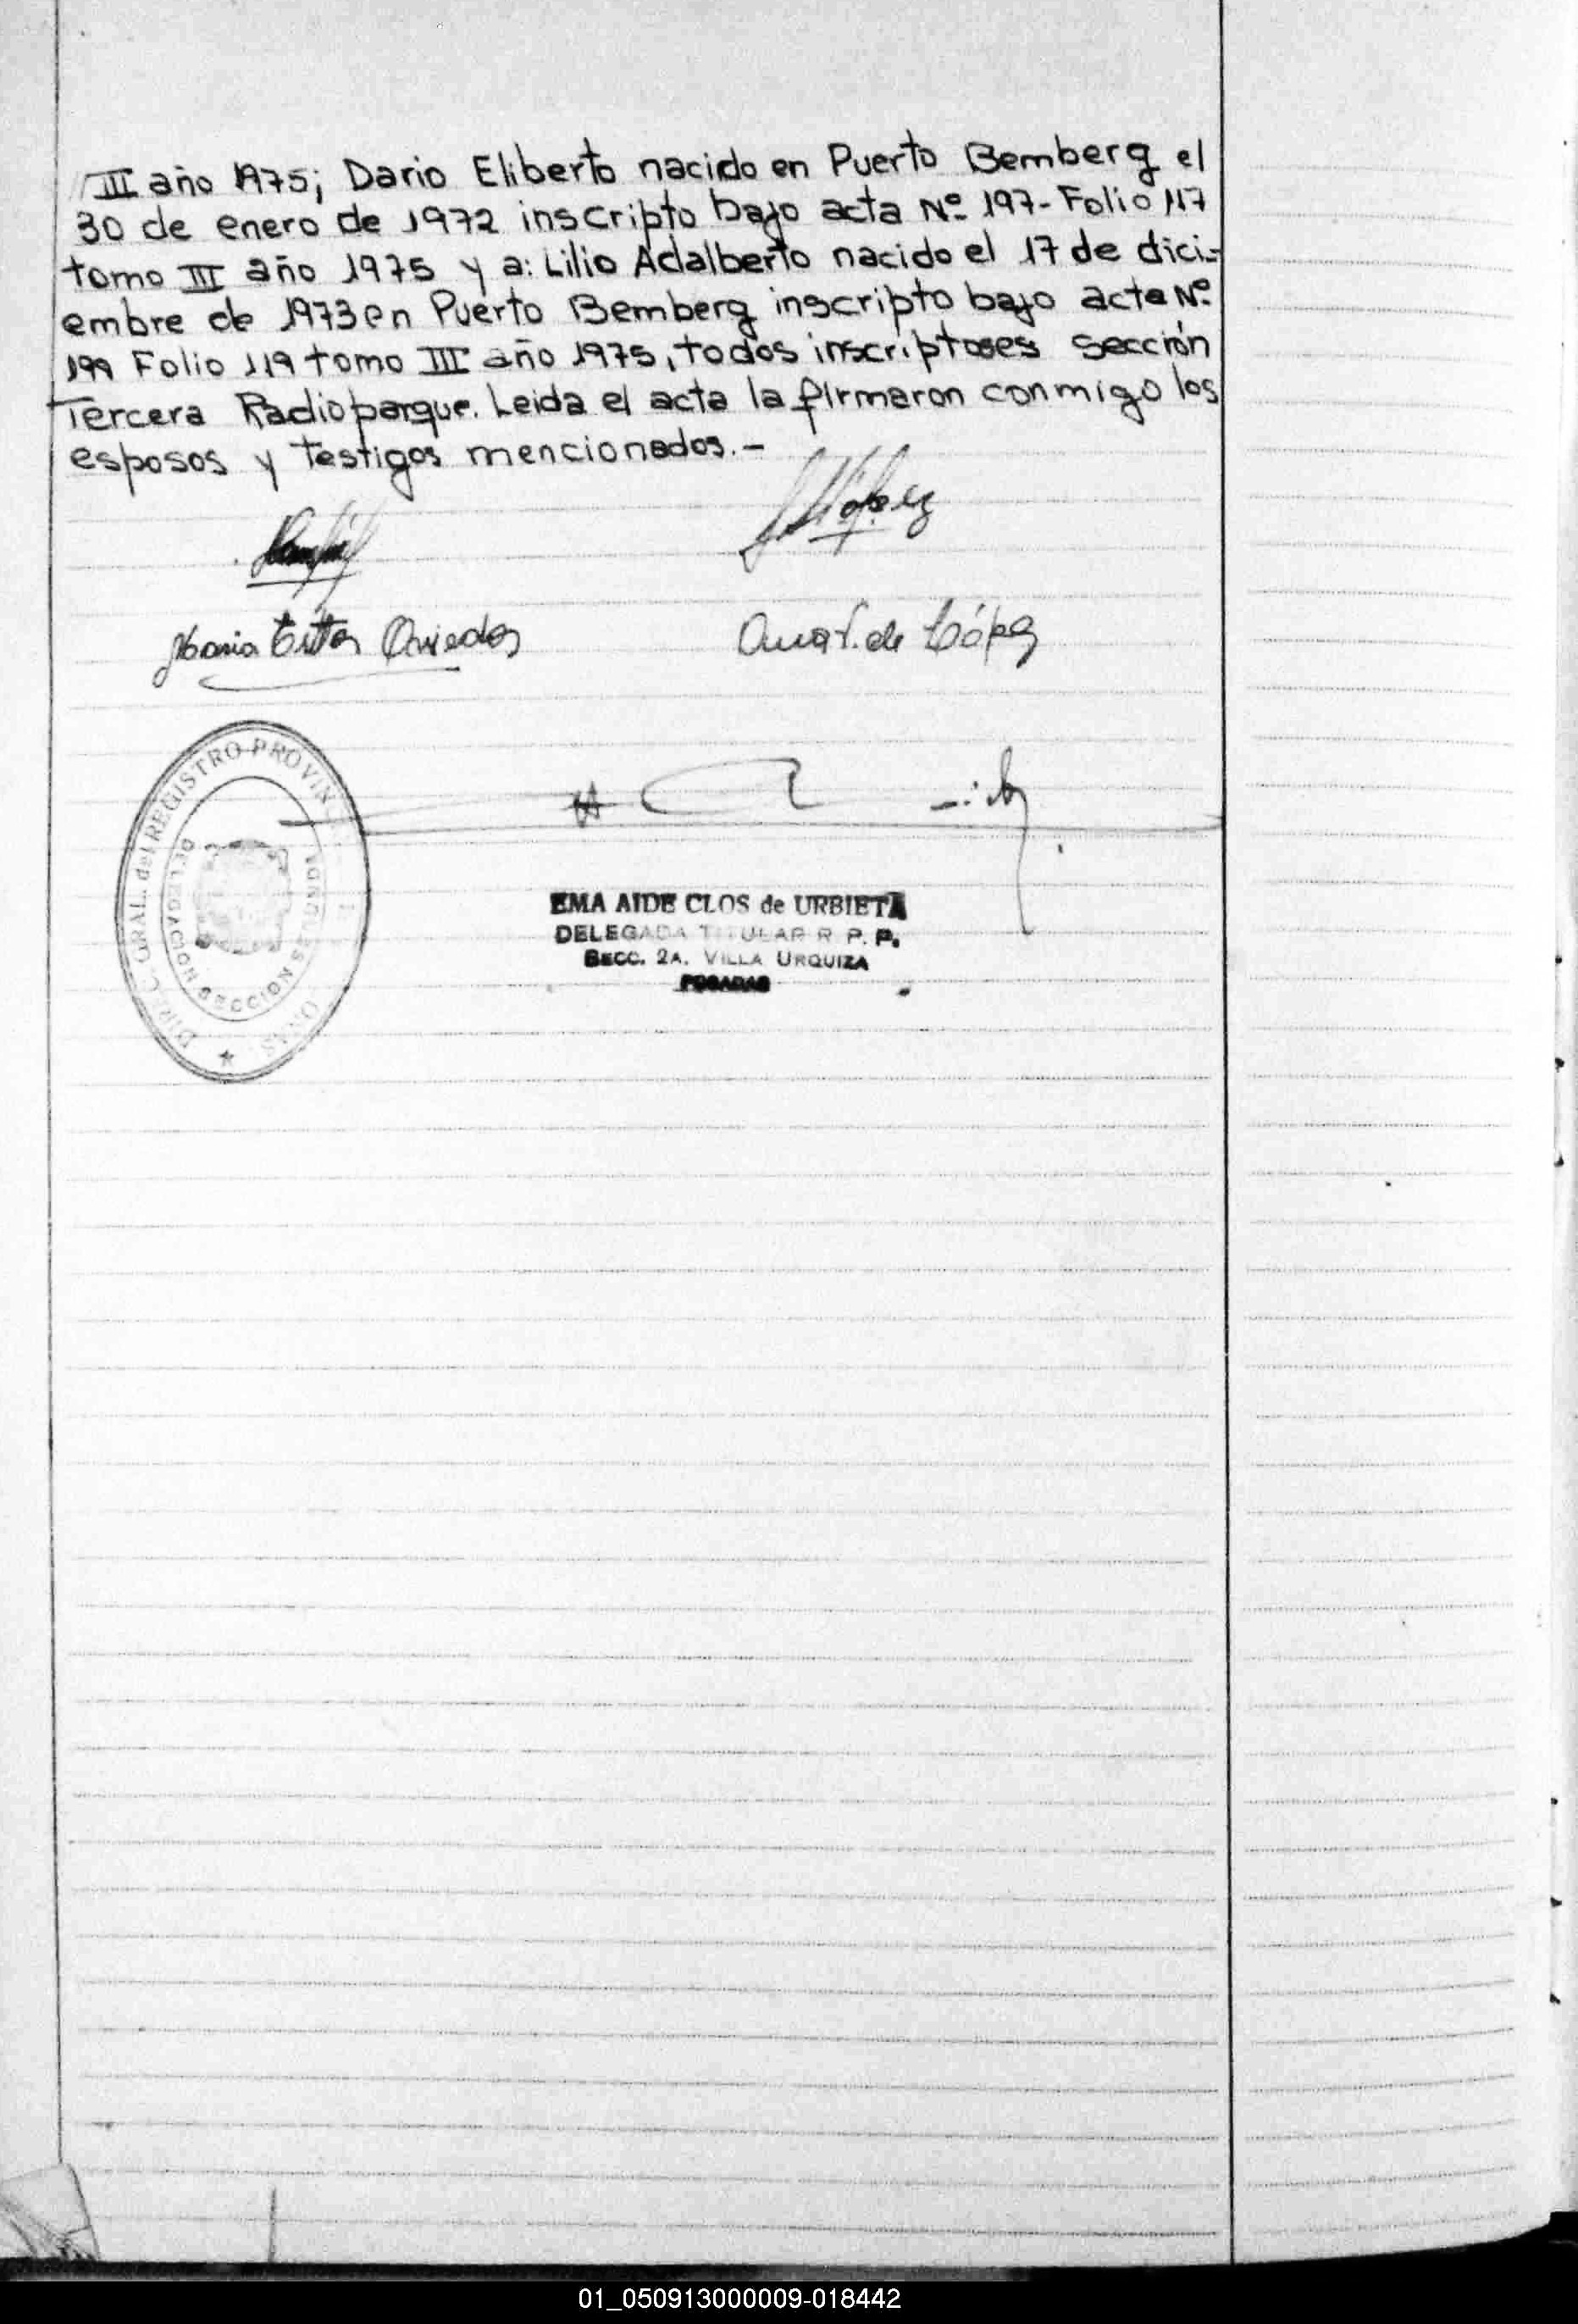 III año 1975; Dario Eliberto nacido en Puerto Bemberg el
30 de enero de 1972 inscripto bajo acta Nº 197- Folio 117
tomo III año 1975 y a: Lilio Adalberto nacido el 17 de dici-
embre de 1973 en Puerto Bemberg inscripto bajo acta Nº
199 Folio 119 tomo III año 1975, todos inscriptoses sección
Tercera Radioparque. Leida el acta la firmaron conmigo los
esposos y testigos mencionados.-
López
Maria Ester Oviedo
de López
DIREC. GRAL. del REGISTRO PROVIN
DELEGACION SECCION SEGUNDA
EMA AIDE CLOS de URBIETA
DELEGADA TITULAR R. P. P.
SECC. 2A. VILLA URQUIZA
POSADAS
01_050913000009-018442